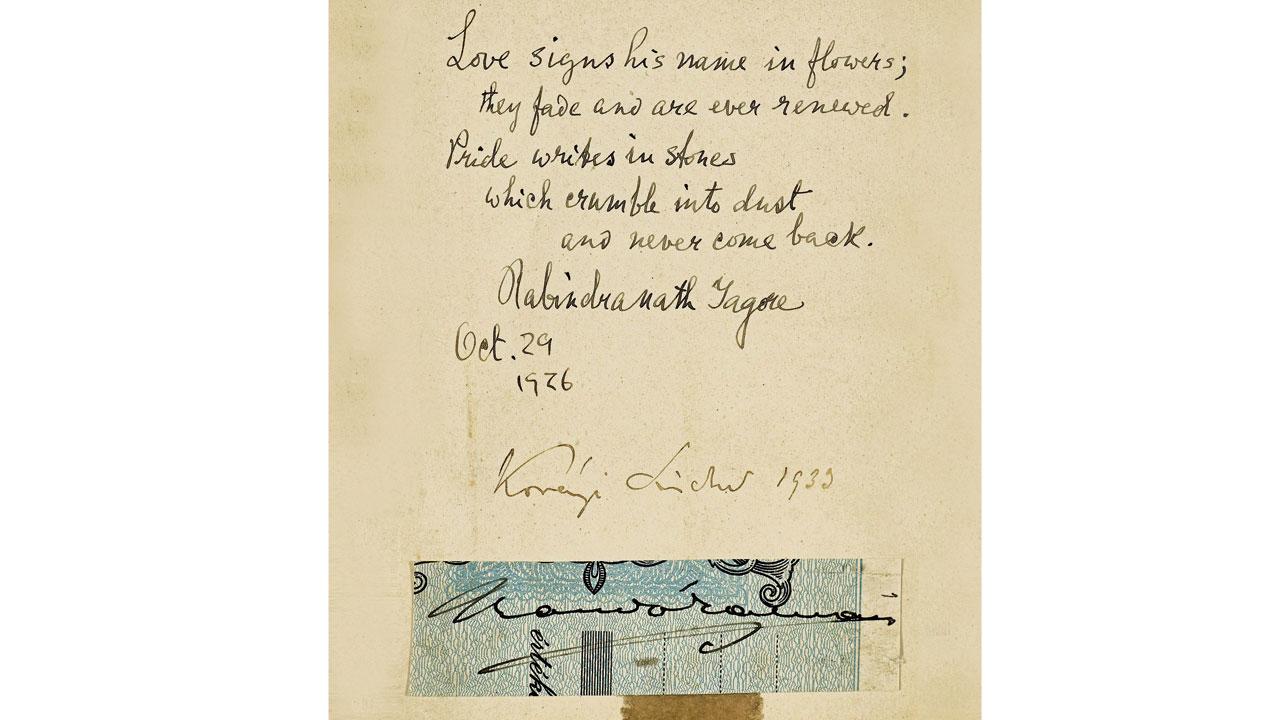 Love signs his name in flowers;
they fade and are ever renewed.
Pride writes in stones
which crumble into dust
and never come back.
Rabindranath Tagore
Oct. 29
1926
Korányi Sándor 1933
értéki